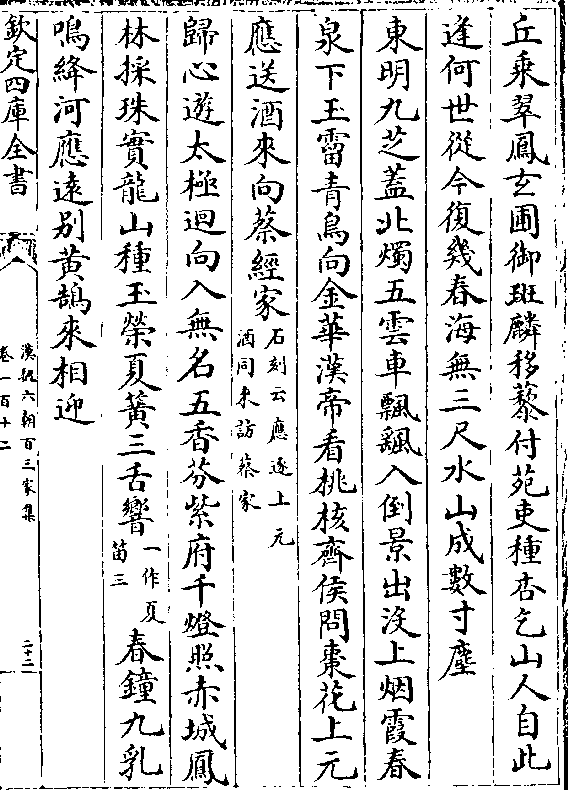 丘乘翠鳳玄圃御斑麟移藜付苑吏種杏乞山人自此
逢何世從今復幾春海無三尺水山成數寸塵
東明九芝蓋北燭五雲車飄飖入倒景出沒上烟霞春
泉下玉霤青鳥向金華漢帝看桃核齊侯問棗花上元
應送酒來向蔡經家石刻云應逐上元酒同來訪蔡家
歸心遊太極迴向入無名五香芬紫府千燈照赤城鳳
林採珠實龍山種玉榮夏簧三舌響一作夏笛三春鐘九乳
鳴絳河應遠別黃鵠來相迎
欽定四庫全書
漢魏六朝百三家集
卷一百十二
二十二